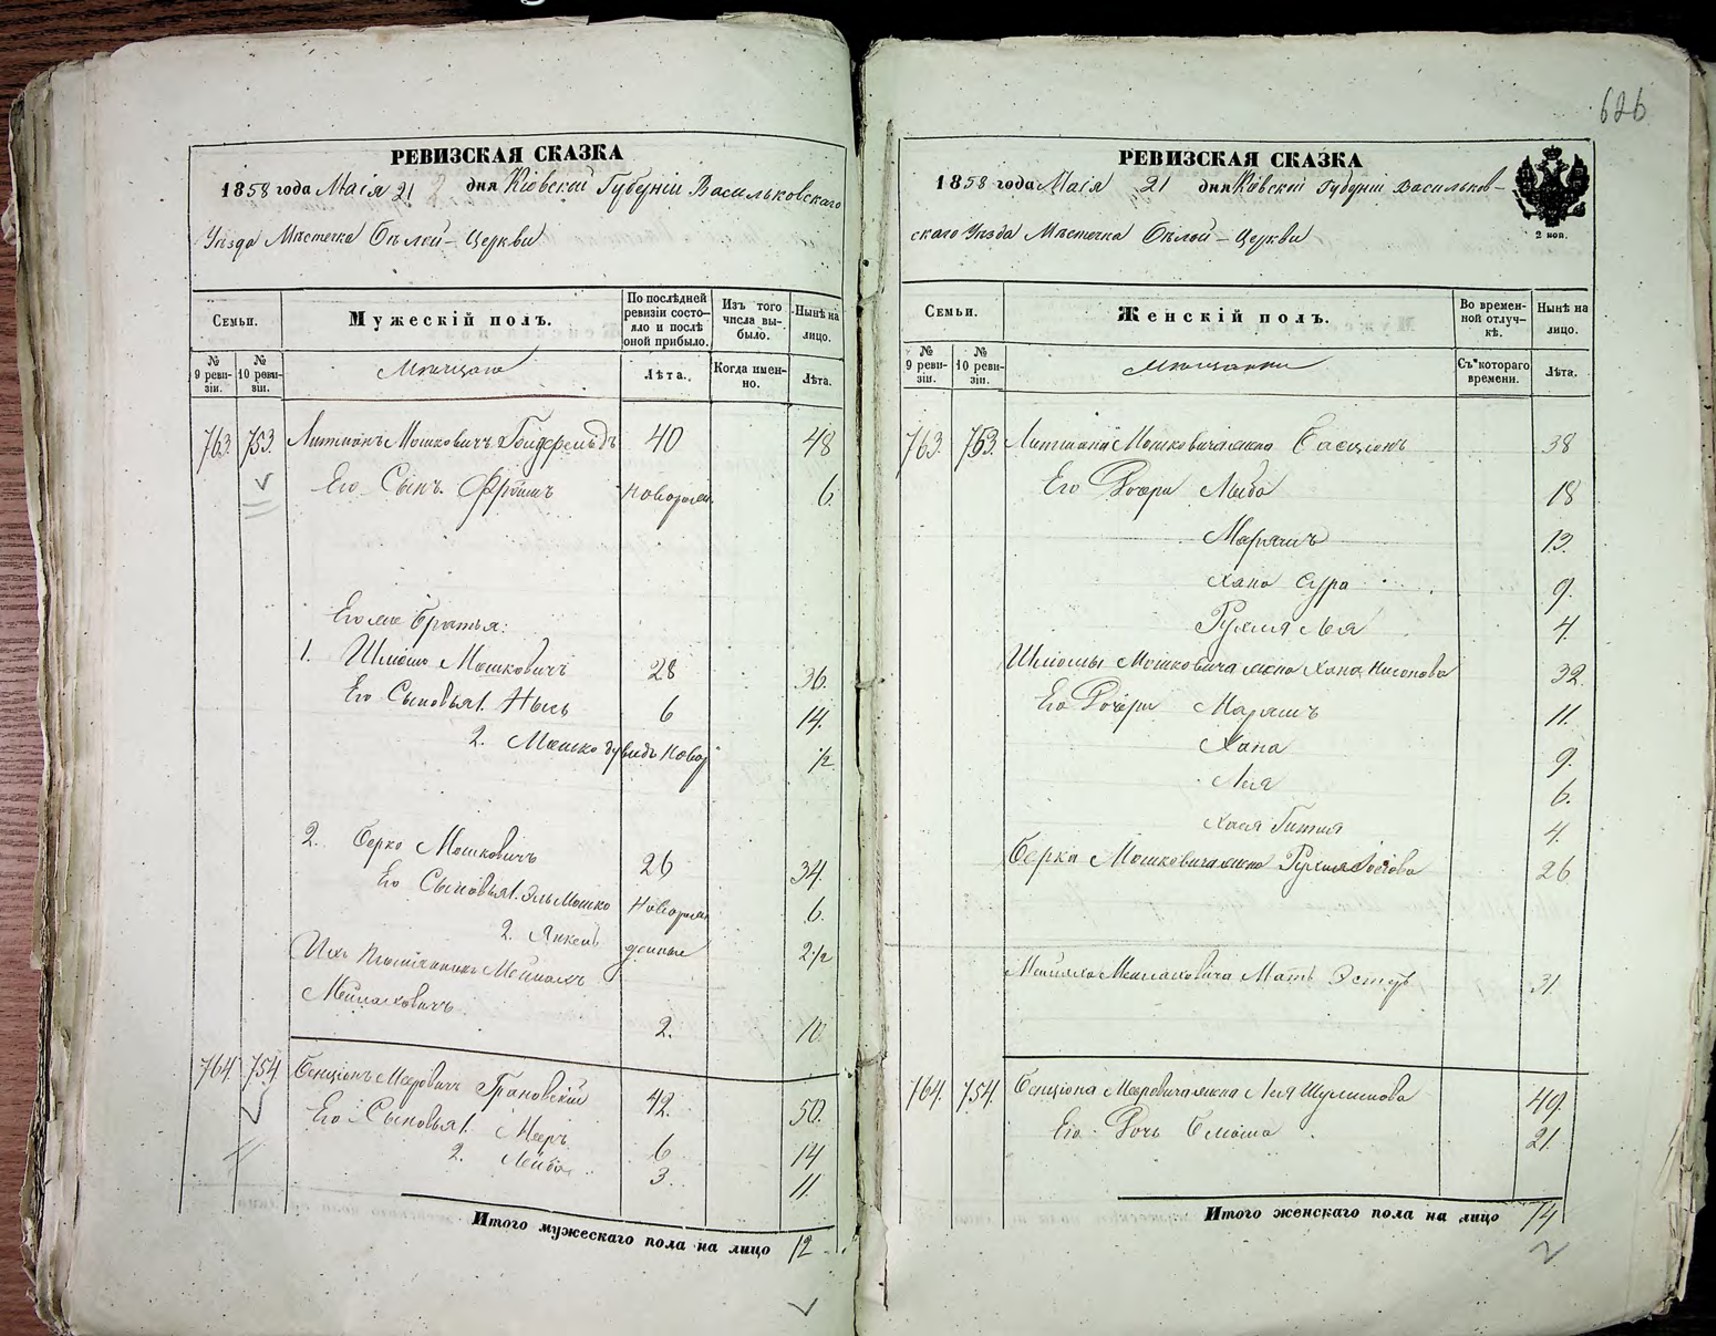 626
РЕВИЗСКАЯ СКАЗКА
1858 года Маія 21 дня Кіевской Губерніи Васильковскаго
Уѣзда Мѣстечка Бѣлой-Церкви
Семьи.
Мужескій полъ.
По послѣдней ревизіи состо-
яло и послѣ оной прибыло.
Изъ того числа вы-
было.
Нынѣ на лицо.
№ 9 реви-
зіи.
№ 10 реви-
зіи.
Мѣщане
Лѣта.
Когда имен-
но.
Лѣта.
763 753 Литманъ Мошковичъ 40 48
Его Сынъ Фроимъ новорожд. 6.
Его же братья:
1. Шлиома Мошковичъ 28 36.
Его Сыновья 1. Нысь 6 14.
2. Мошко Дувидъ Новор 1/2
2. Берко Мошковичъ 26 34.
Его Сыновья 1. Эль Мошко Новорож 6.
2. Янкель денные 2 1/2
Ихъ Племянникъ
Мейлаховичъ 2. 10.
764 754 Бенціонъ Мееровичъ Грановскій 42. 50.
Его Сыновья 1. Мееръ 6 14
2. Лейба 3. 11.
Итого мужескаго пола на лицо 12
РЕВИЗСКАЯ СКАЗКА
1858 года Маія 21 дня Кіевской Губерніи Васильков-
скаго Уѣзда Мѣстечка Бѣлой-Церкви
2 коп.
Семьи.
Женскій полъ.
Во времен-
ной отлуч-
кѣ.
Нынѣ на лицо.
№ 9 реви-
зіи.
№ 10 реви-
зіи.
Мѣщанки
Съ котораго времени.
Лѣта.
763. 753. Литмана Мошковича жена 38
Его Дочери 18
Марямъ 13.
Хана Сура 9.
Рухля Лея 4
Шліомы Мошковича жена Хана Нисонова 32
Его Дочери Марямъ 11.
Хана 9.
Лея 6.
Хася Гитля 4.
Берка Мошковича жена Рухля 26
Мейлаховича Мать Эстеръ 31.
764. 754. Бенціона Мееровича жена Лея Шулимова 49.
Его Дочь 21.
Итого женскаго пола на лицо 14